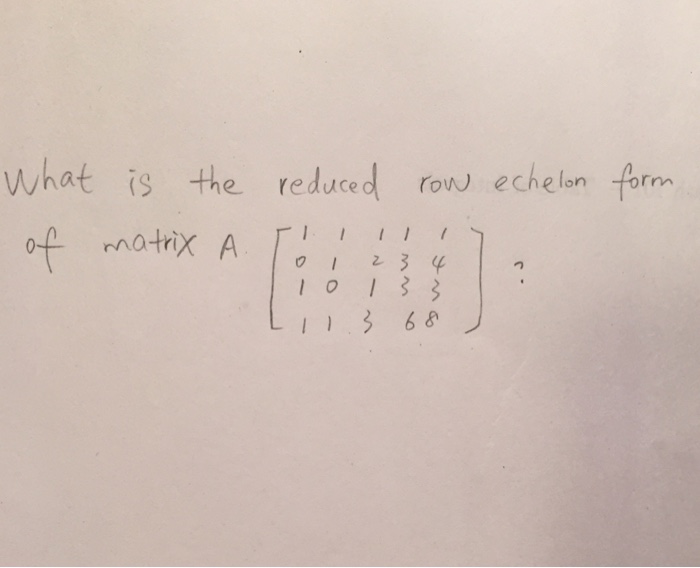 What is the reduced row echelon form
of matrix A. [ 1 1 1 1 1
0 1 2 3 4
1 0 1 3 3
1 1 3 6 8 ] ?